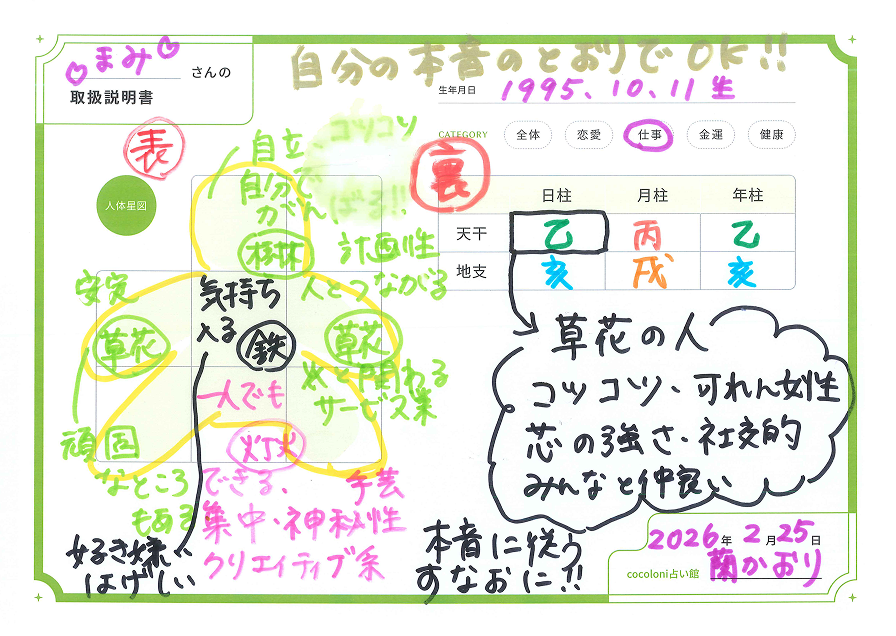 まみ さんの
取扱説明書
自分の本音のとおりでOK!!
生年月日 1995、10、11生
CATEGORY 全体 恋愛 仕事 金運 健康
表
人体星図
自立、コツコツ
自分で
がんばる!!
樹林
計画性
人とつながる
安定
草花
気持ち
入る
鉄
草花
人と関わる
サービス業
頑固
なところ
もある
一人でも
灯火
できる、手芸
集中・神秘性
クリエイティブ系
好き嫌い
はげしい
裏
日柱 月柱 年柱
天干 乙 丙 乙
地支 亥 戌 亥
草花の人
コツコツ・可れん女性
芯の強さ・社交的
みんなと仲良い
本音に従う
すなおに!!
2026年2月25日
cocoloni占い館 蘭かおり